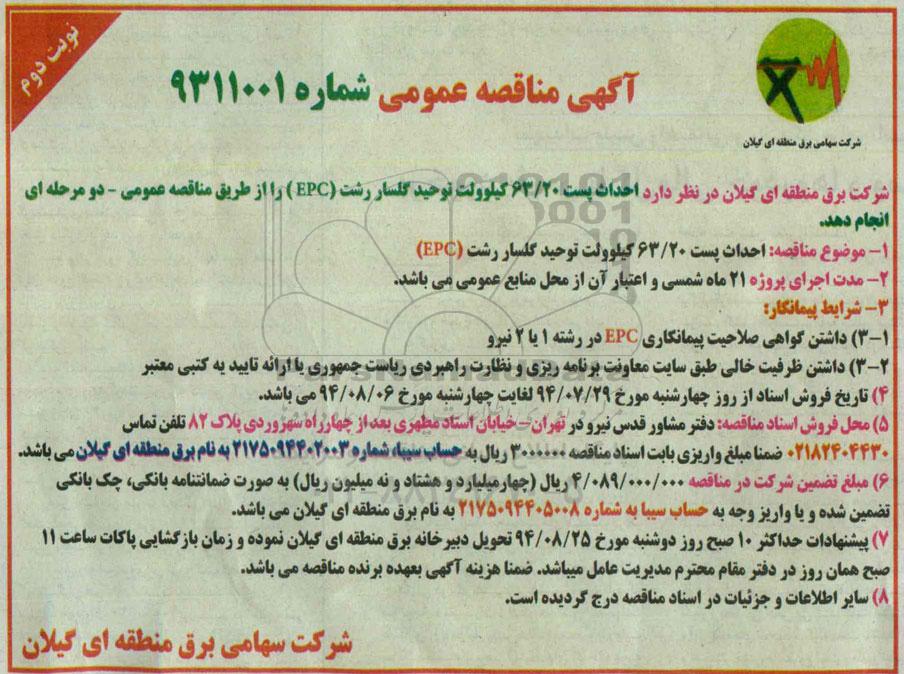 نوبت دوم
آگهی مناقصه عمومی شماره ۹۳۱۱۰۰۱
شرکت سهامی برق منطقه ای گیلان
شرکت برق منطقه ای گیلان در نظر دارد احداث پست ۶۳/۲۰ کیلوولت توحید گلسار رشت (EPC) را از طریق مناقصه عمومی - دو مرحله ای
انجام دهد.
۱- موضوع مناقصه: احداث پست ۶۳/۲۰ کیلوولت توحید گلسار رشت (EPC)
۲- مدت اجرای پروژه ۲۱ ماه شمسی و اعتبار آن از محل منابع عمومی می باشد.
۳- شرایط پیمانکار:
۳-۱) داشتن گواهی صلاحیت پیمانکاری EPC در رشته ۱ یا ۲ نیرو
۳-۲) داشتن ظرفیت خالی طبق سایت معاونت برنامه ریزی و نظارت راهبردی ریاست جمهوری یا ارائه تایید یه کتبی معتبر
۴) تاریخ فروش اسناد از روز چهارشنبه مورخ ۹۴/۰۷/۲۹ لغایت چهارشنبه مورخ ۹۴/۰۸/۰۶ می باشد.
۵) محل فروش اسناد مناقصه: دفتر مشاور قدس نیرو در تهران-خیابان استاد مطهری بعد از چهارراه سهروردی پلاک ۸۲ تلفن تماس
۰۲۱۸۲۴۰۴۴۳۰ ضمنا مبلغ واریزی بابت اسناد مناقصه ۳۰۰۰۰۰۰ ریال به حساب سیبا، شماره ۲۱۷۵۰۹۴۴۰۲۰۰۳ به نام برق منطقه ای گیلان می باشد.
۶) مبلغ تضمین شرکت در مناقصه ۴/۰۸۹/۰۰۰/۰۰۰ ریال (چهارمیلیارد و هشتاد و نه میلیون ریال) به صورت ضمانتنامه بانکی، چک بانکی
تضمین شده و یا واریز وجه به حساب سیبا به شماره ۲۱۷۵۰۹۴۴۰۵۰۰۸ به نام برق منطقه ای گیلان می باشد.
۷) پیشنهادات حداکثر ۱۰ صبح روز دوشنبه مورخ ۹۴/۰۸/۲۵ تحویل دبیرخانه برق منطقه ای گیلان نموده و زمان بازگشایی پاکات ساعت ۱۱
صبح همان روز در دفتر مقام محترم مدیریت عامل میباشد. ضمنا هزینه آگهی بعهده برنده مناقصه می باشد.
۸) سایر اطلاعات و جزئیات در اسناد مناقصه درج گردیده است.
شرکت سهامی برق منطقه ای گیلان